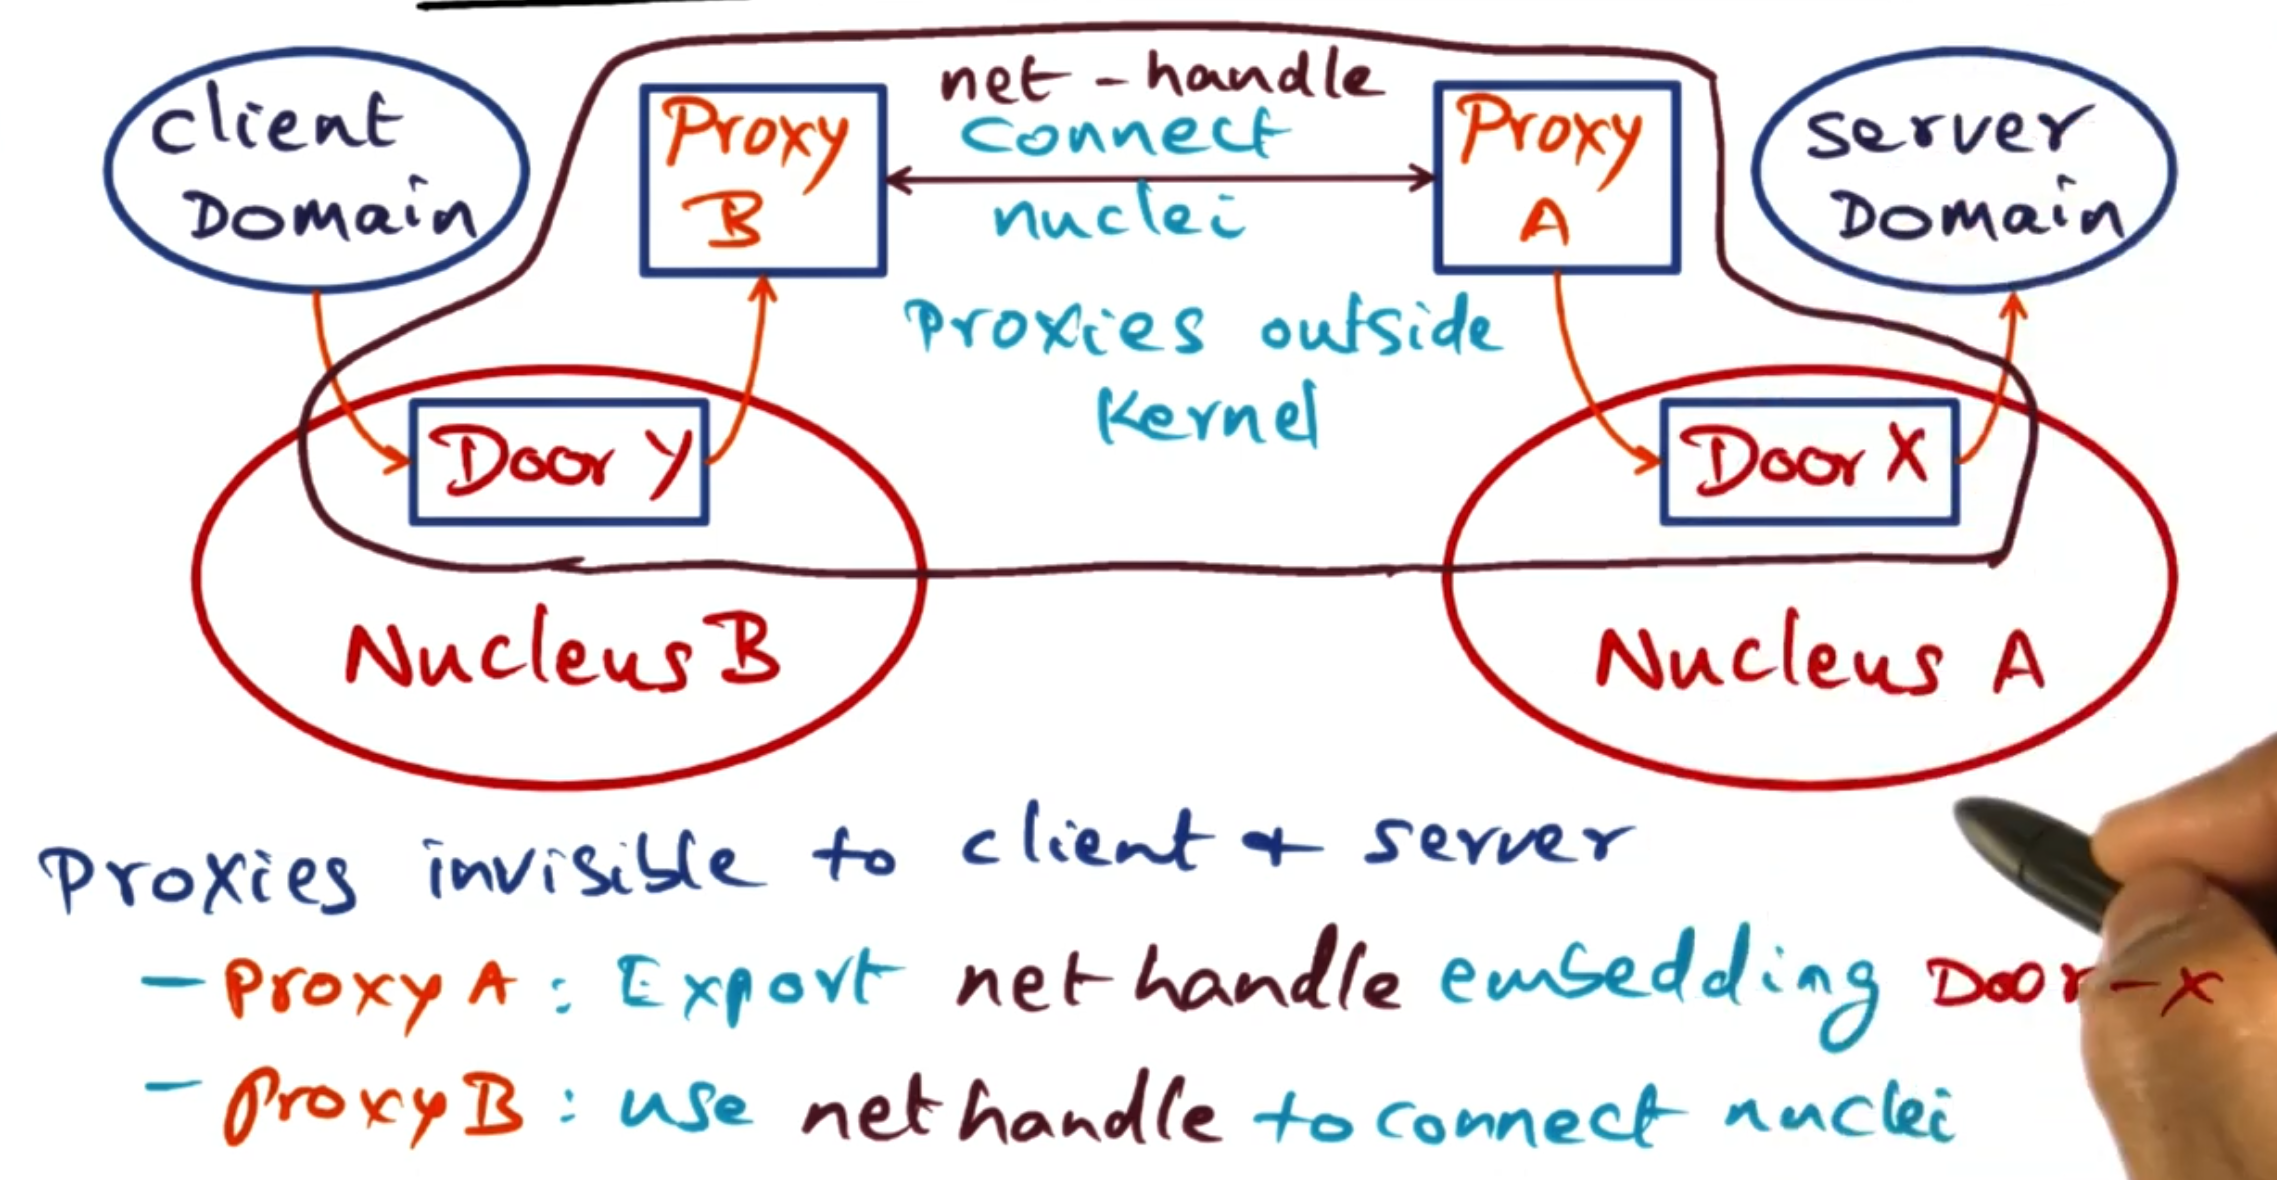 client
Domain
Proxy
B
net-handle
connect
nuclei
Proxy
A
server
Domain
Proxies outside
Kernel
Door Y
Door X
Nucleus B
Nucleus A
Proxies invisible to client + server
- Proxy A : Export net handle embedding Door-x
- Proxy B : use net handle to connect nuclei